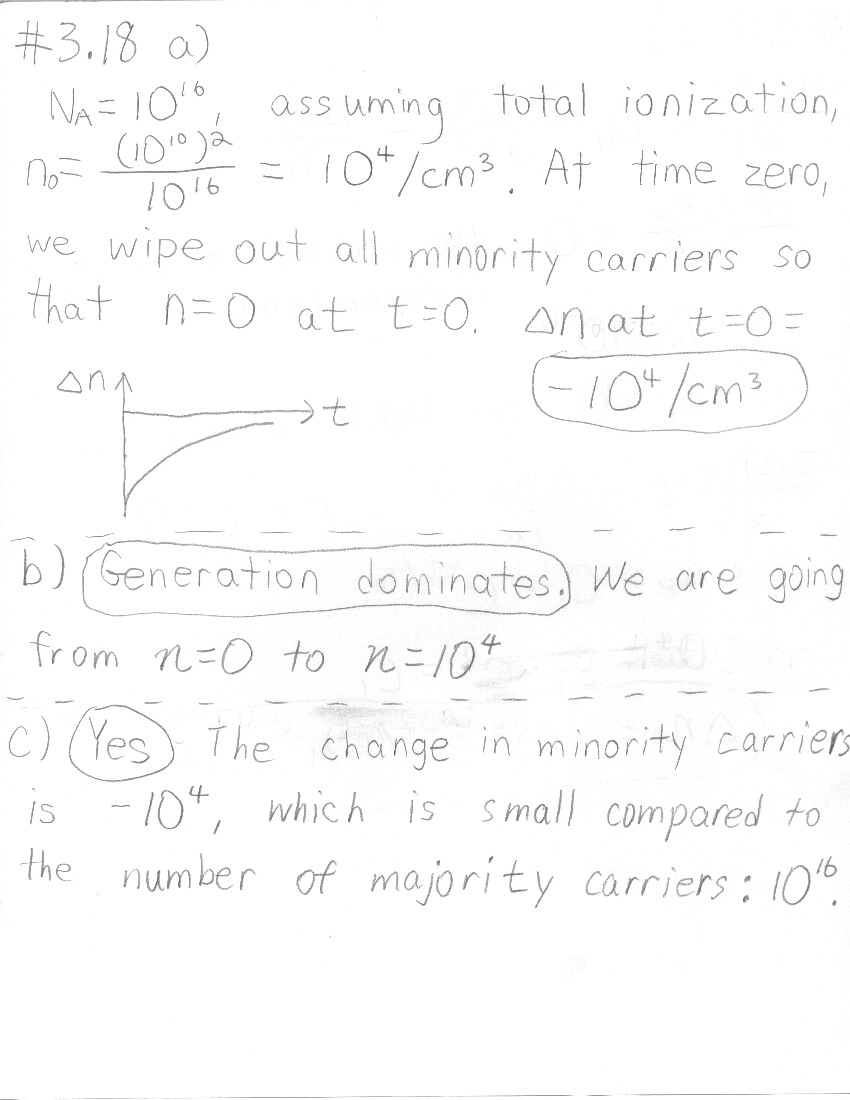 #3.18 a)
N_A = 10^16, assuming total ionization,
n₀ = (10^10)^2 / 10^16 = 10^4/cm³. At time zero,
we wipe out all minority carriers so
that n=0 at t=0. Δn at t=0 =
-10^4/cm³
Δn
t
b) Generation dominates. We are going
from n=0 to n=10^4
c) Yes The change in minority carriers
is -10^4, which is small compared to
the number of majority carriers: 10^16.